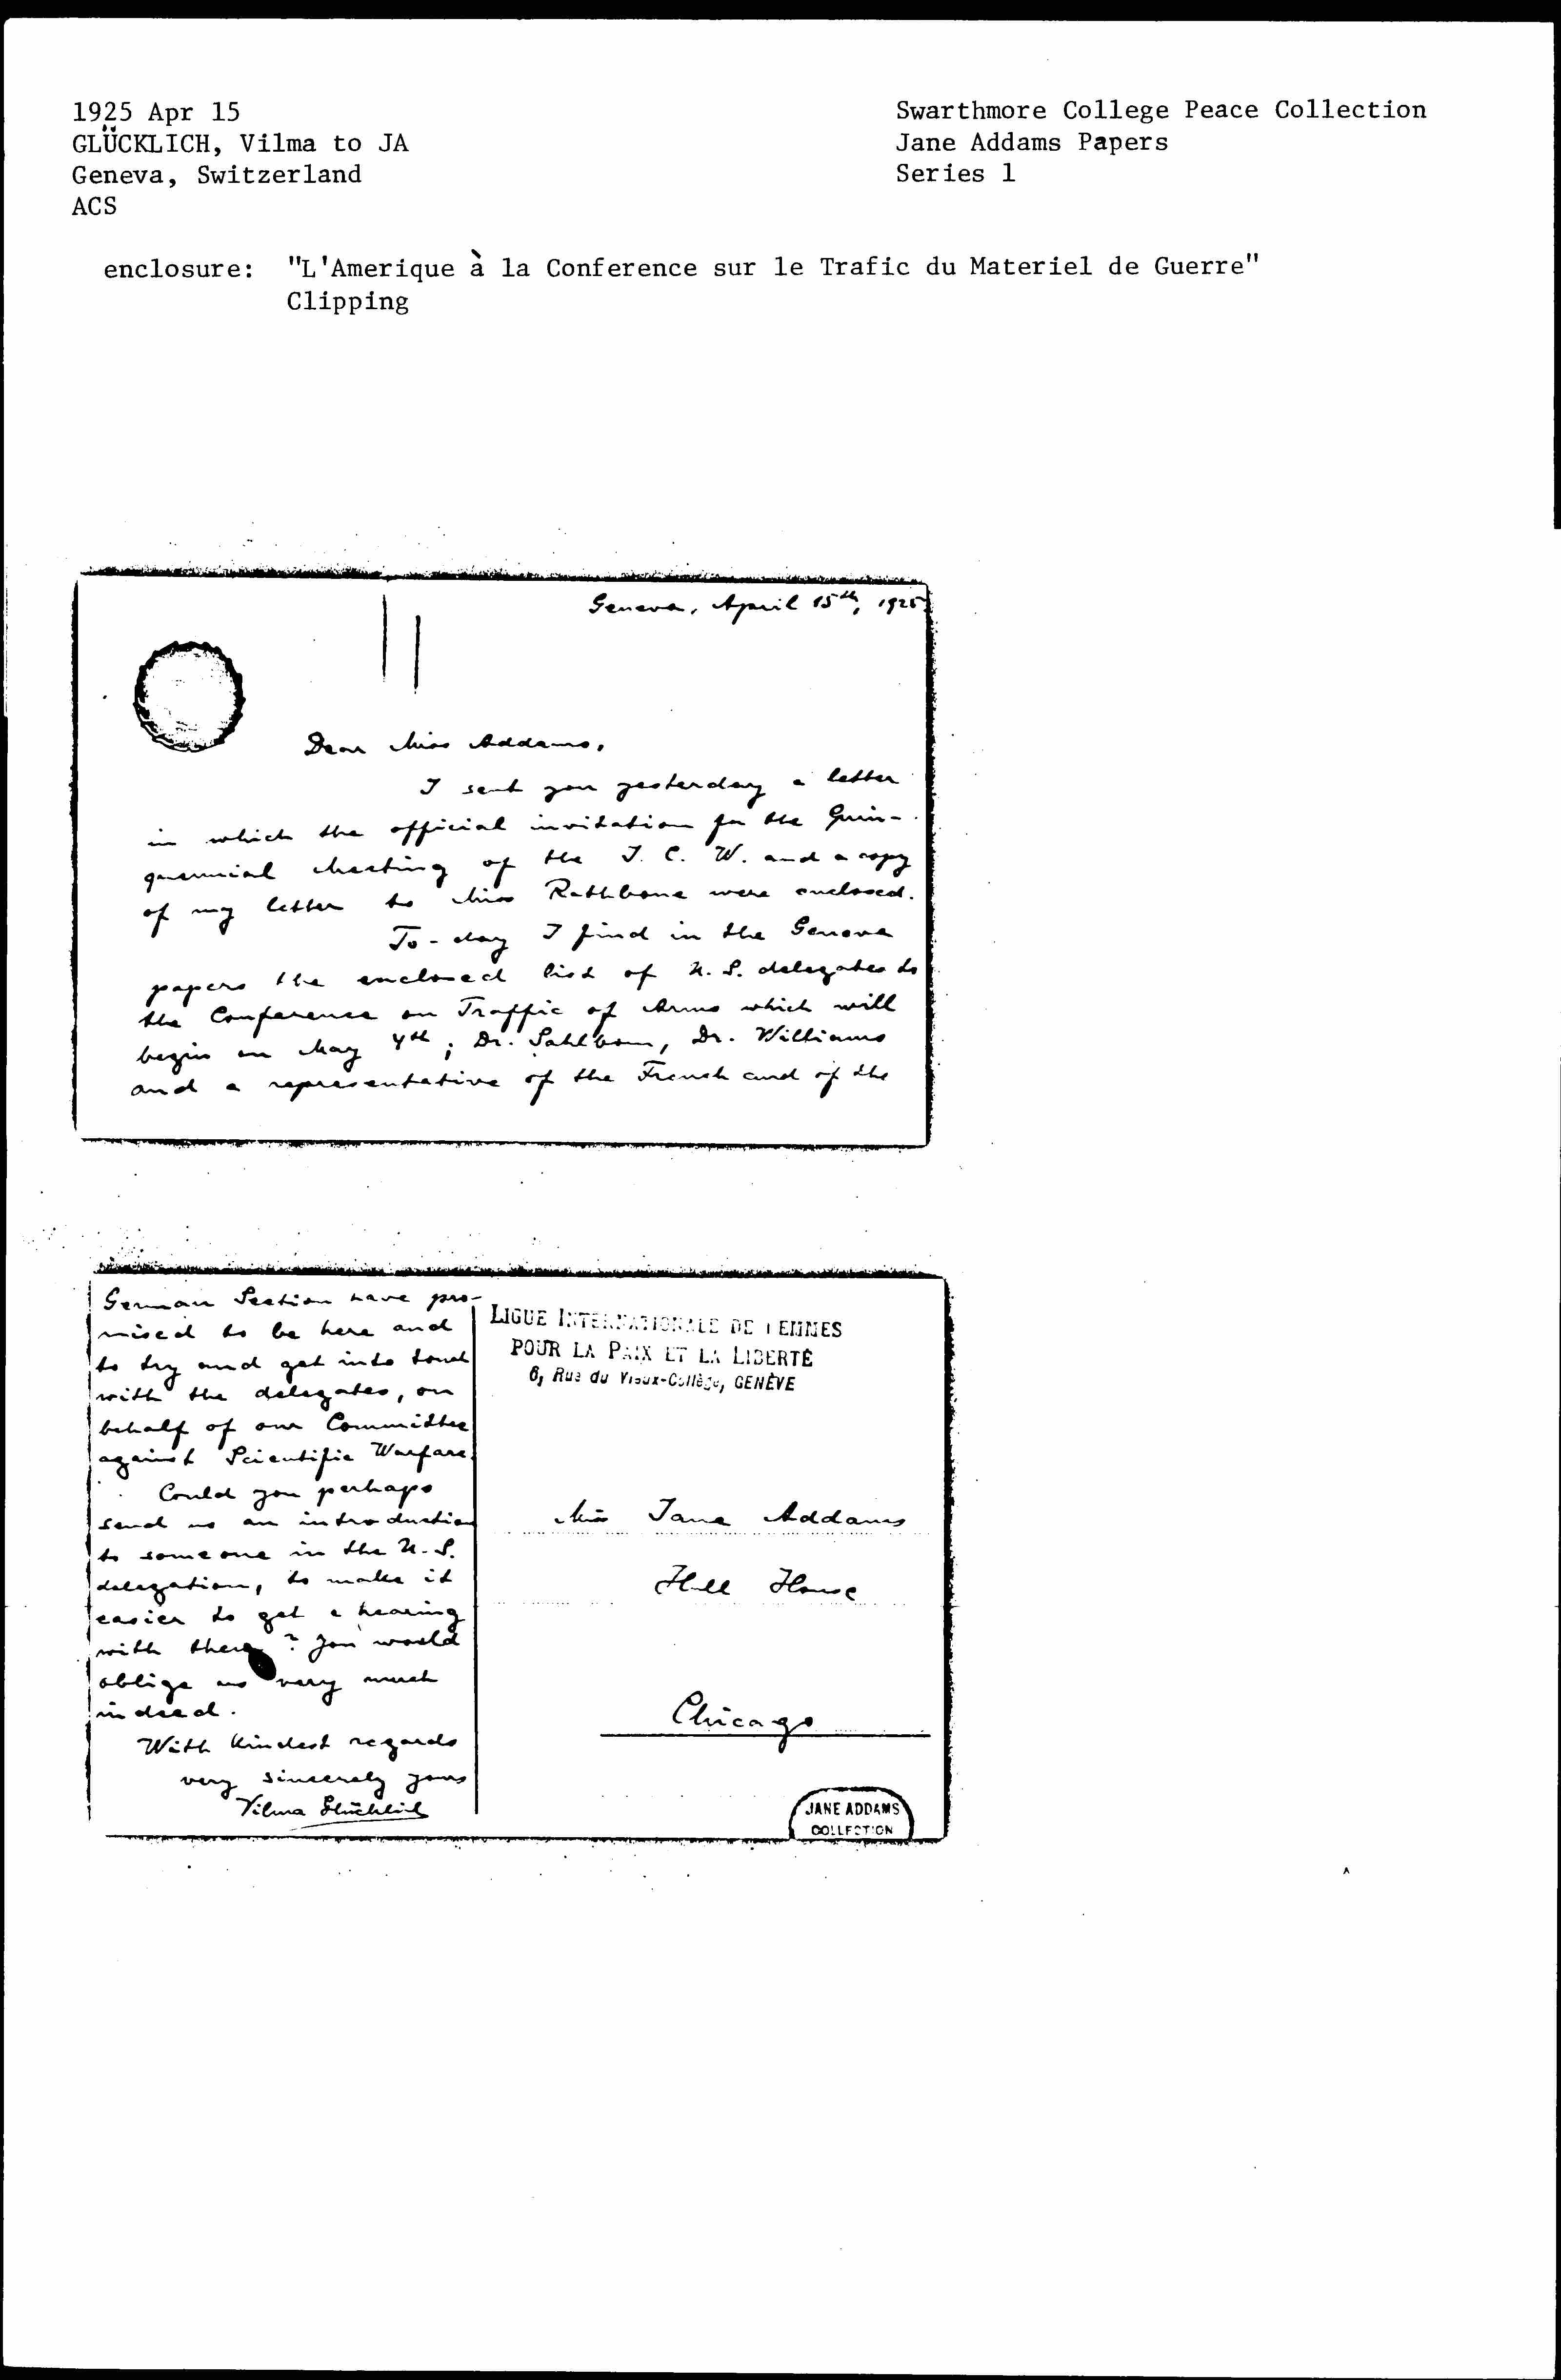 1925 Apr 15
GLÜCKLICH, Vilma to JA
Geneva, Switzerland
ACS
Swarthmore College Peace Collection
Jane Addams Papers
Series 1
enclosure: "L'Amerique à la Conference sur le Trafic du Materiel de Guerre"
Clipping
Geneva, April 15th, 1925
Dear Miss Addams,
I sent you yesterday a letter
in which the official invitation for the Quin-
quennial Meeting of the I. C. W. and a copy
of my letter to Miss Rathbone were enclosed.
To-day I find in the Geneva
papers the enclosed list of U. S. delegates to
the Conference on Traffic of Arms which will
begin on May 4th; Dr. Sahlbom, Dr. Williams
and a representative of the French and of the
German Section have pro-
mised to be here and
to try and get into touch
with the delegates, on
behalf of our Committee
against Scientific Warfare.
Could you perhaps
send us an introduction
to someone in the U.S.
delegation, to make it
easier to get a hearing
with there? You would
oblige us very much
indeed.
With kindest regards
very sincerely yours
Vilma Glücklich
LIGUE INTERNATIONALE DE FEMMES
POUR LA PAIX ET LA LIBERTÉ
6, Rue du Vieux-Collège, GENÈVE
Miss Jane Addams
Hull House
Chicago
JANE ADDAMS
COLLECTION